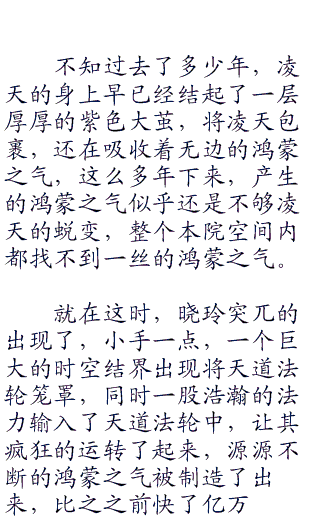 不知过去了多少年，凌
天的身上早已经结起了一层
厚厚的紫色大茧，将凌天包
裹，还在吸收着无边的鸿蒙
之气，这么多年下来，产生
的鸿蒙之气似乎还是不够凌
天的蜕变，整个本院空间内
都找不到一丝的鸿蒙之气。
就在这时，晓玲突兀的
出现了，小手一点，一个巨
大的时空结界出现将天道法
轮笼罩，同时一股浩瀚的法
力输入了天道法轮中，让其
疯狂的运转了起来，源源不
断的鸿蒙之气被制造了出
来，比之之前快了亿万